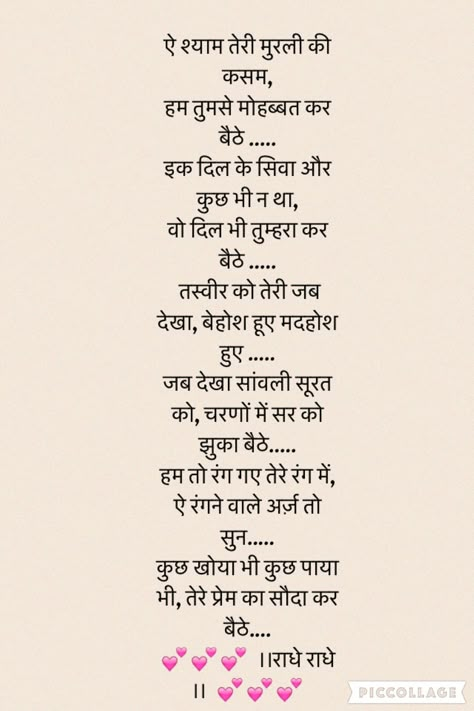 ऐ श्याम तेरी मुरली की
कसम,
हम तुमसे मोहब्बत कर
बैठे .....
इक दिल के सिवा और
कुछ भी न था,
वो दिल भी तुम्हरा कर
बैठे .....
तस्वीर को तेरी जब
देखा, बेहोश हूए मदहोश
हुए .....
जब देखा सांवली सूरत
को, चरणों में सर को
झुका बैठे.....
हम तो रंग गए तेरे रंग में,
ऐ रंगने वाले अर्ज़ तो
सुन.....
कुछ खोया भी कुछ पाया
भी, तेरे प्रेम का सौदा कर
बैठे....
💕💕💕 ।।राधे राधे
।। 💕💕💕
PICCOLLAGE